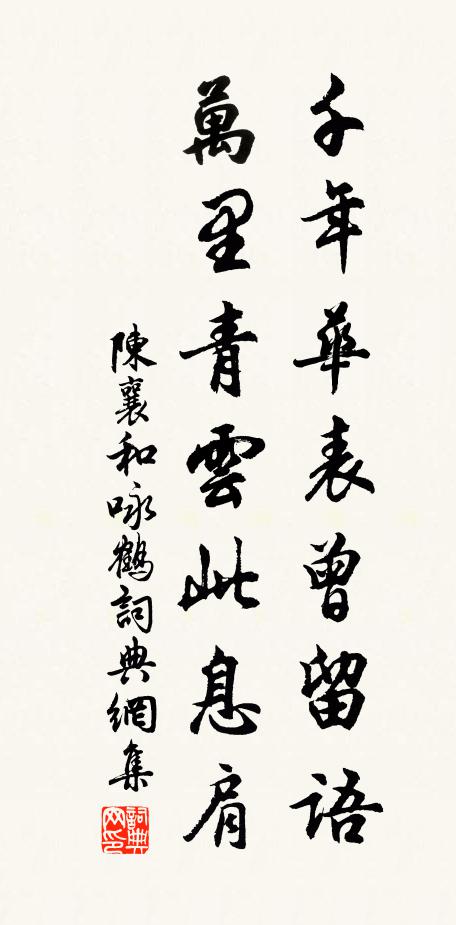 千年華表曾留語
萬里青雲此息肩
陳襄和咏鶴詞典網集
詞典网印